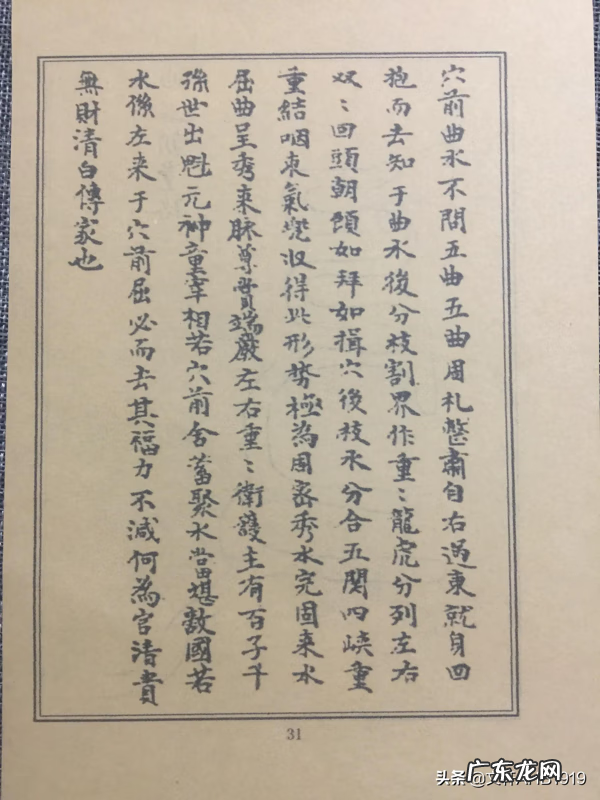 穴前曲水不問五曲五曲周札整肅自右過東就身回
抱而去知于曲水後分枝割界作重〻龍虎分列左右
双〻回頭朝顧如拜如揖穴後枝水分合五関四峽重
重結咽束氣兜收得此形勢極為周密秀水完固来水
屈曲呈秀来脉尊貴端嚴左右重〻衛護主有百子千
孫世出魁元神童宰相若穴前舍蓄聚水當堪敵國若
水傢左来于穴前屈必而去其福力不減何為官清貴
無財清白傳家也
31
头条
1919
广东龙网